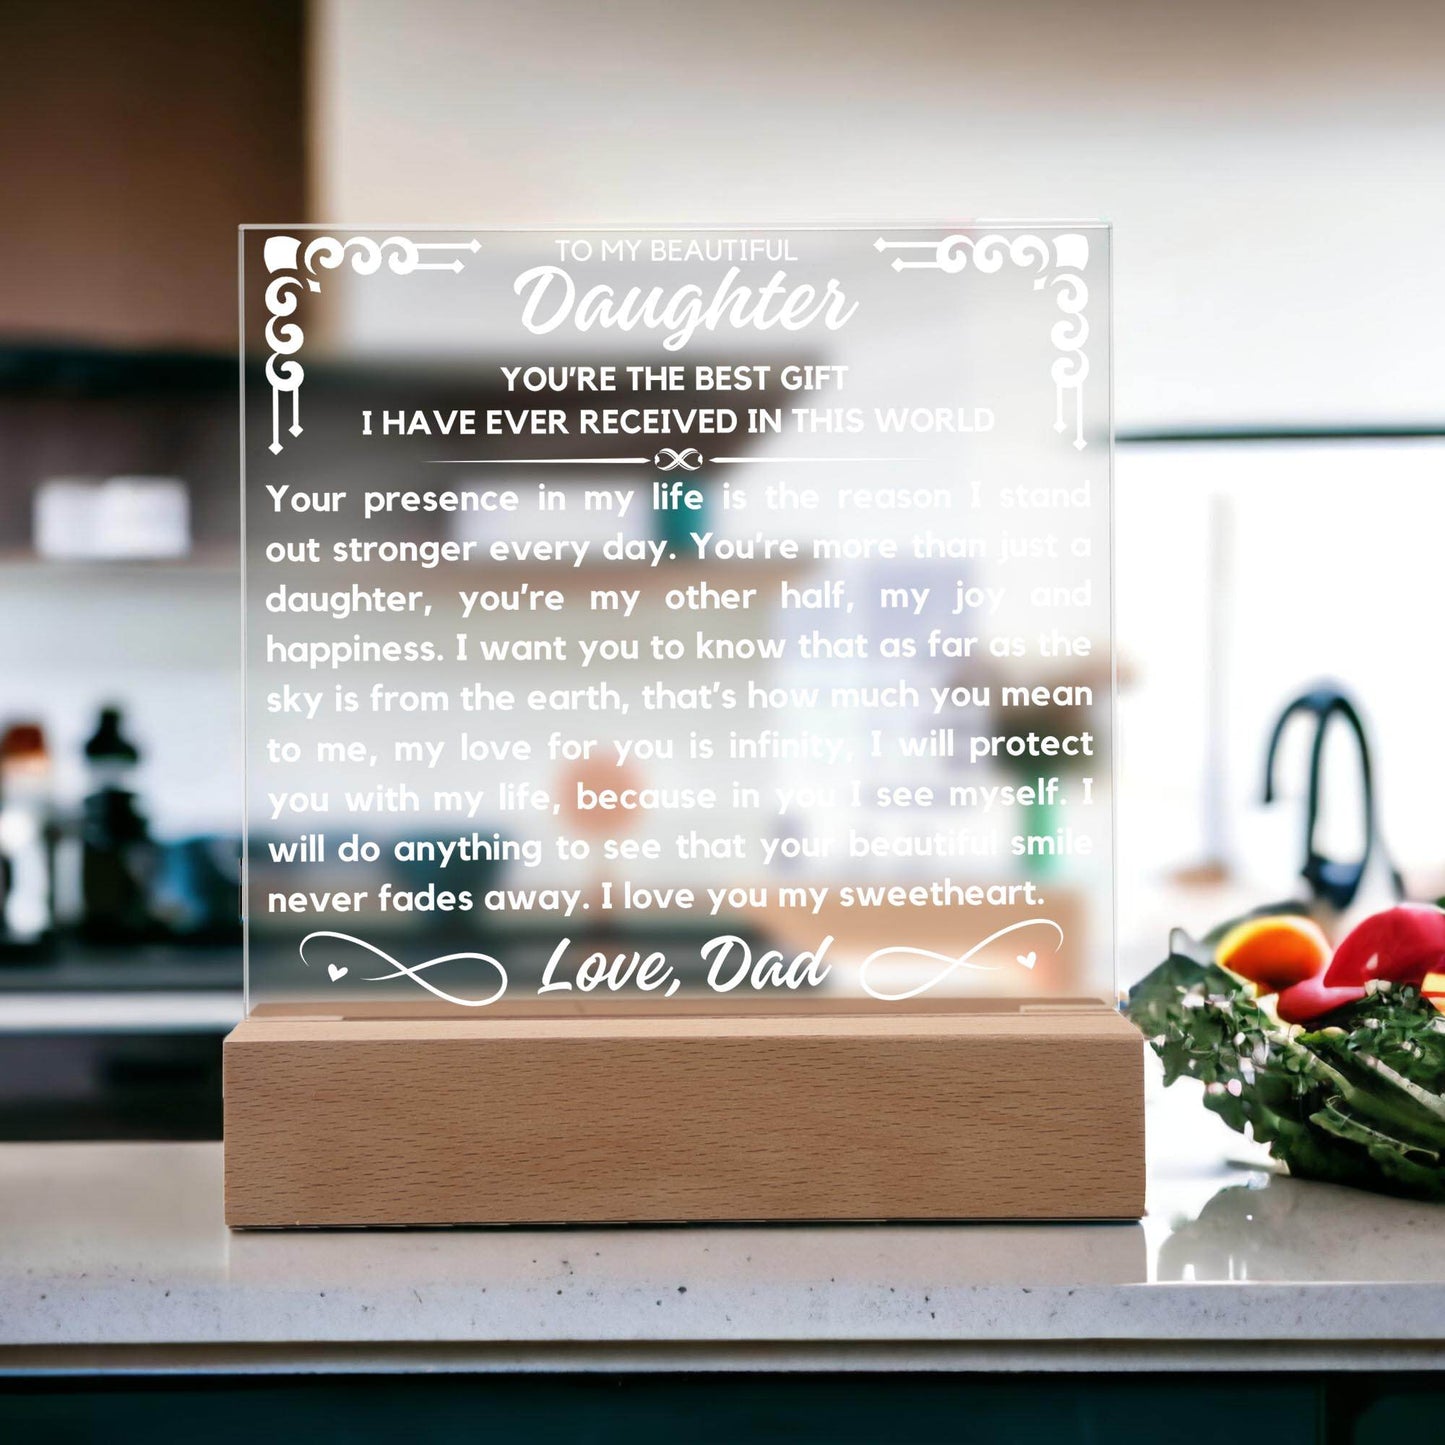 TO MY BEAUTIFUL
Daughter
YOU'RE THE BEST GIFT
I HAVE EVER RECEIVED IN THIS WORLD
Your presence in my life is the reason I stand
out stronger every day. You're more than just a
daughter, you're my other half, my joy and
happiness. I want you to know that as far as the
sky is from the earth, that's how much you mean
to me, my love for you is infinity, I will protect
you with my life, because in you I see myself. I
will do anything to see that your beautiful smile
never fades away. I love you my sweetheart.
Love, Dad